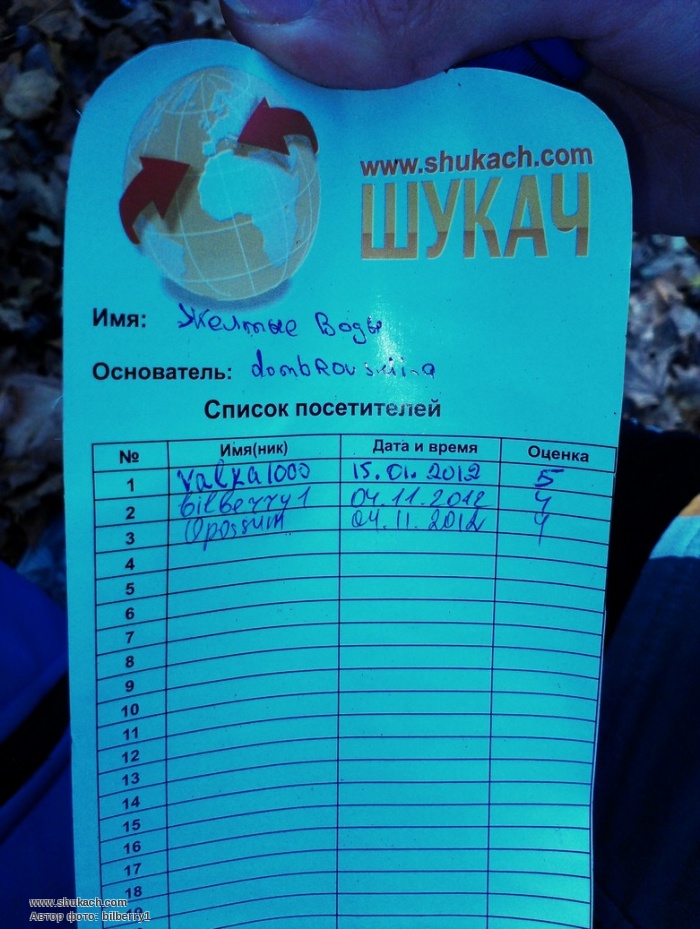 www.shukach.com
ШУКАЧ
Имя: Желтые Воды
Основатель:
Список посетителей
№ Имя(ник) Дата и время Оценка
1 Valka1000 15.01.2012 5
2 bilberry1 04.11.2012 4
3 Opossum 04.11.2012 4
4
5
6
7
8
9
10
11
12
13
14
15
16
17
18
19
www.shukach.com
Автор фото: bilberry1